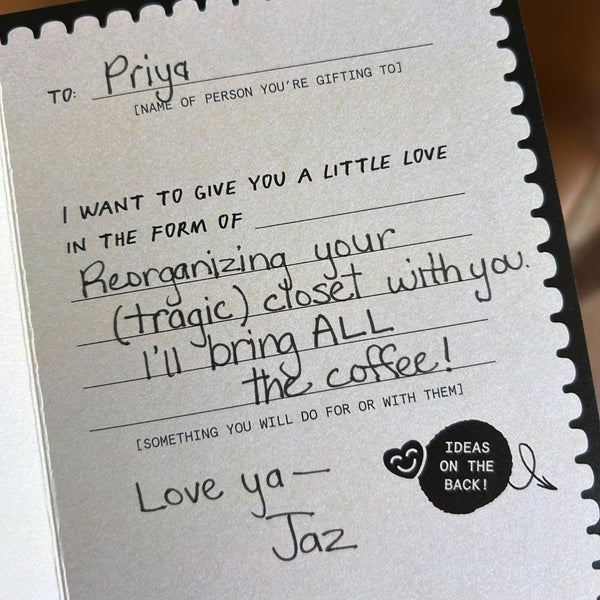 TO: Priya
[NAME OF PERSON YOU'RE GIFTING TO]
I WANT TO GIVE YOU A LITTLE LOVE
IN THE FORM OF
Reorganizing your
(tragic) closet with you.
I'll bring ALL
the coffee!
[SOMETHING YOU WILL DO FOR OR WITH THEM]
IDEAS
ON THE
BACK!
Love ya—
Jaz